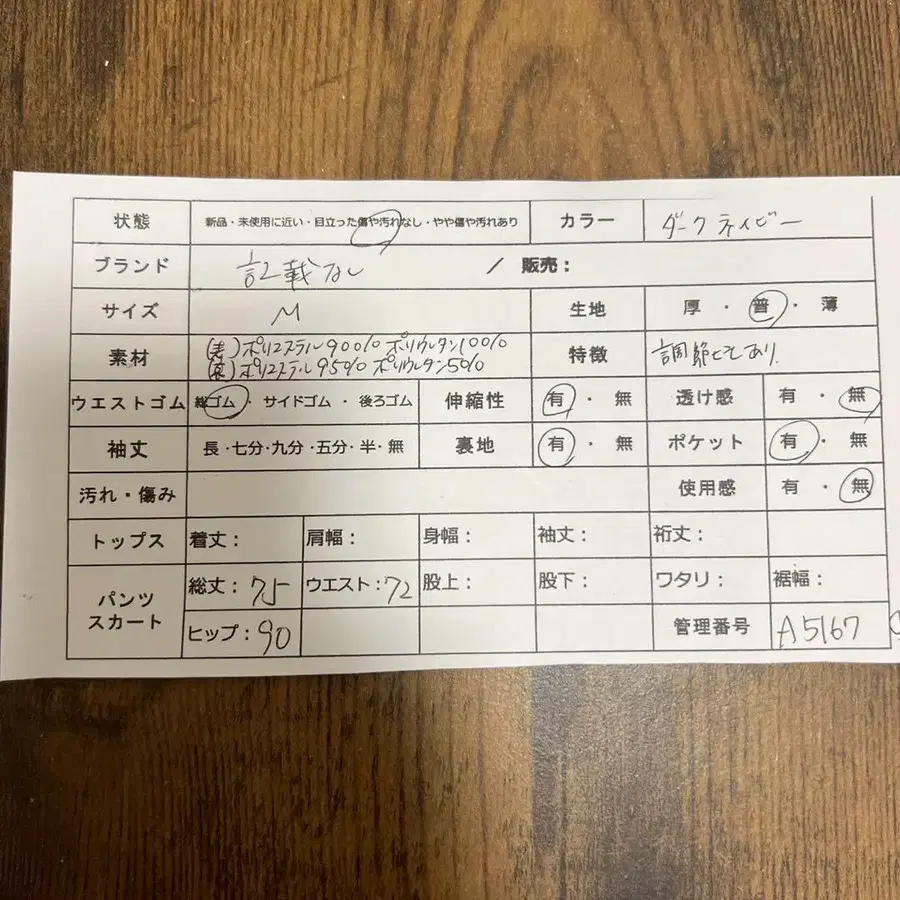 状態 新品・未使用に近い・目立った傷や汚れなし・やや傷や汚れあり カラー ダークネイビー
ブランド 記載なし / 販売：
サイズ M 生地 厚・普・薄
素材 (表)ポリエステル90% ポリウレタン10%
(裏)ポリエステル95% ポリウレタン5% 特徴 調節ヒモあり.
ウエストゴム 総ゴム・サイドゴム・後ろゴム 伸縮性 有・無 透け感 有・無
袖丈 長・七分・九分・五分・半・無 裏地 有・無 ポケット 有・無
汚れ・傷み 使用感 有・無
トップス 着丈： 肩幅： 身幅： 袖丈： 裄丈：
パンツ スカート 総丈：75 ウエスト：72 股上： 股下： ワタリ： 裾幅：
ヒップ：90 管理番号 A5167